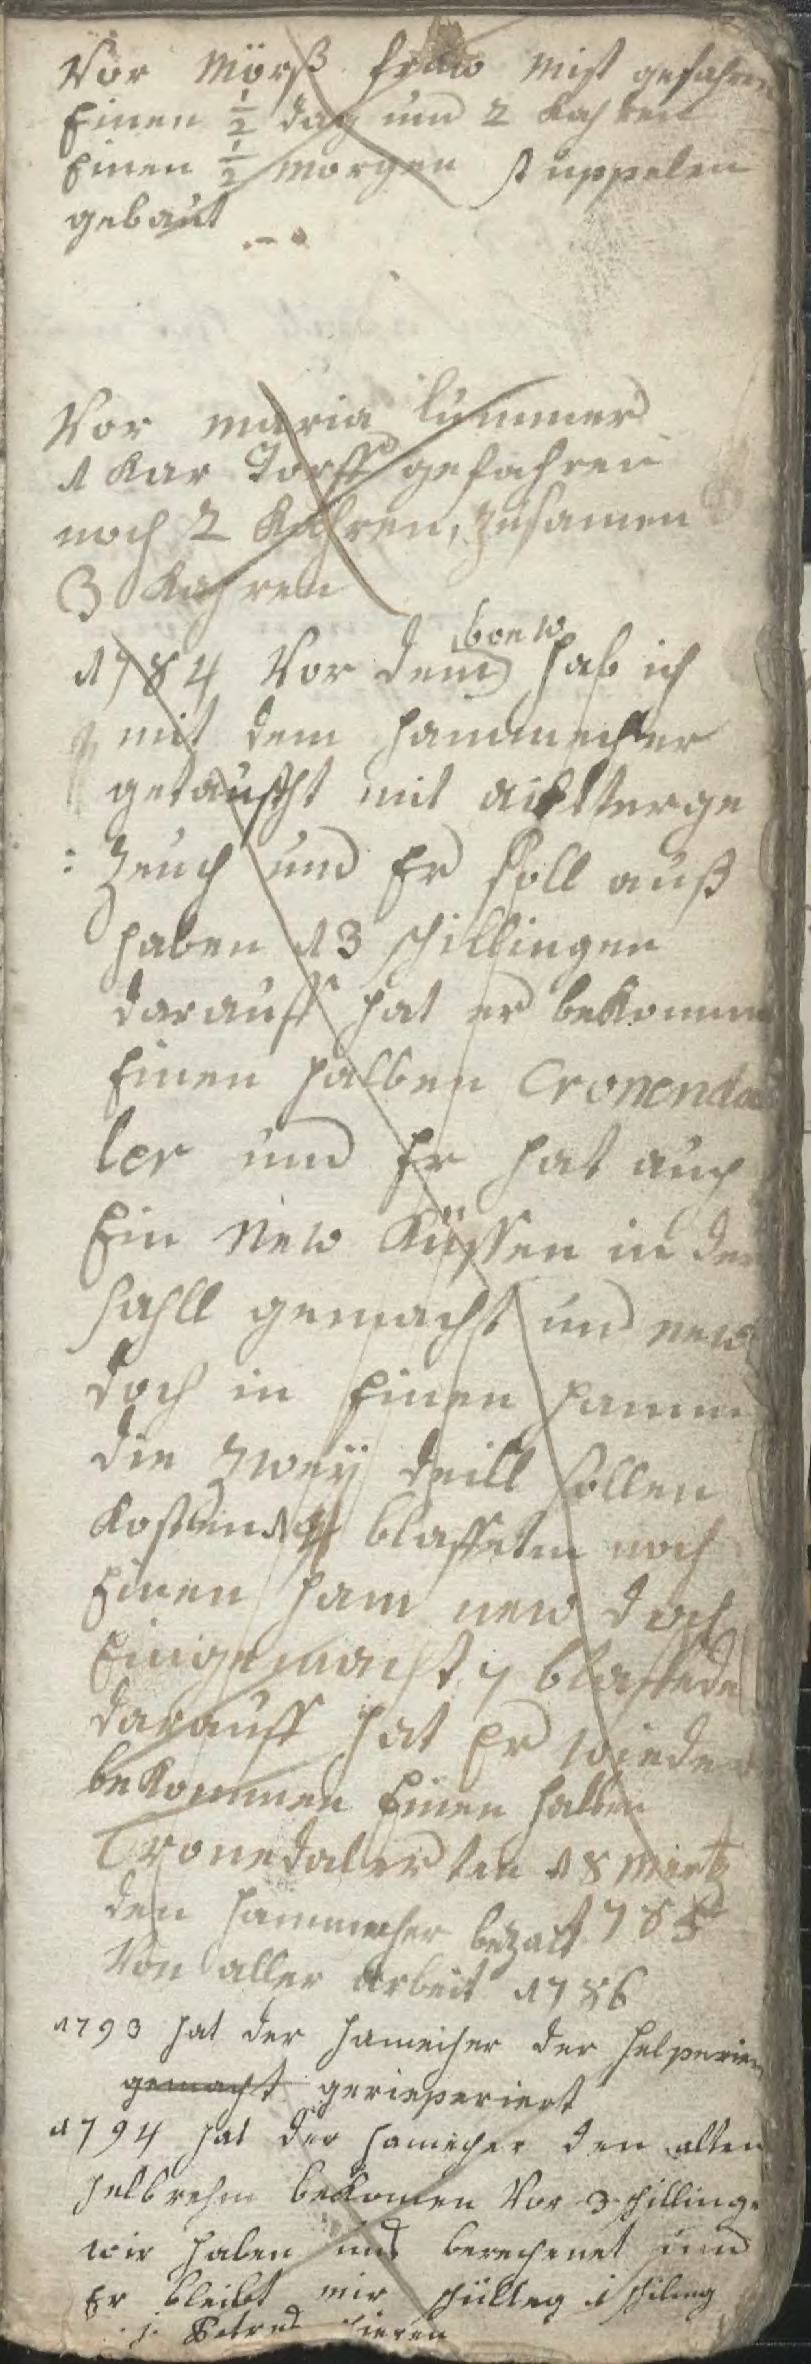 Vor Mörß fraw Mist gefahren
Einen 1/2 dag und 2 Kahren
Einen 1/2 Morgen stuppelen
gebaut
Vor maria lummer
1 Kar Torff gefahren
noch 2 Kahren, zusamen
3 Kahren
1784 Vor dem boew hab ich
mit dem hammecher
getauscht mit
zeuch und Er soll auß
haben 13 schillingen
darauff hat er bekommen
Einen halben Cronenda
ler und Er hat auch
Ein New Küssen in den
sahll gemacht und new
doch in Einen hamm
die zweÿ deill sollen
Kosten blaffeten noch
Einen ham new doch
Eingemacht 7 blaffede
darauff hat Er wieder
bekommen Einen halben
Cronedaler ten 18 Mertz
1785
den hammecher bezalt
Von aller arbeit 1786
1793 hat der hamecher der helperien
gemacht gerieperiert
1794 hat der hamecher den alten
helbrehm bekomen Vor 3 schillinge
wir haben uns berechenet und
Er bleibt mir schülleg 1 schilling
Petrus